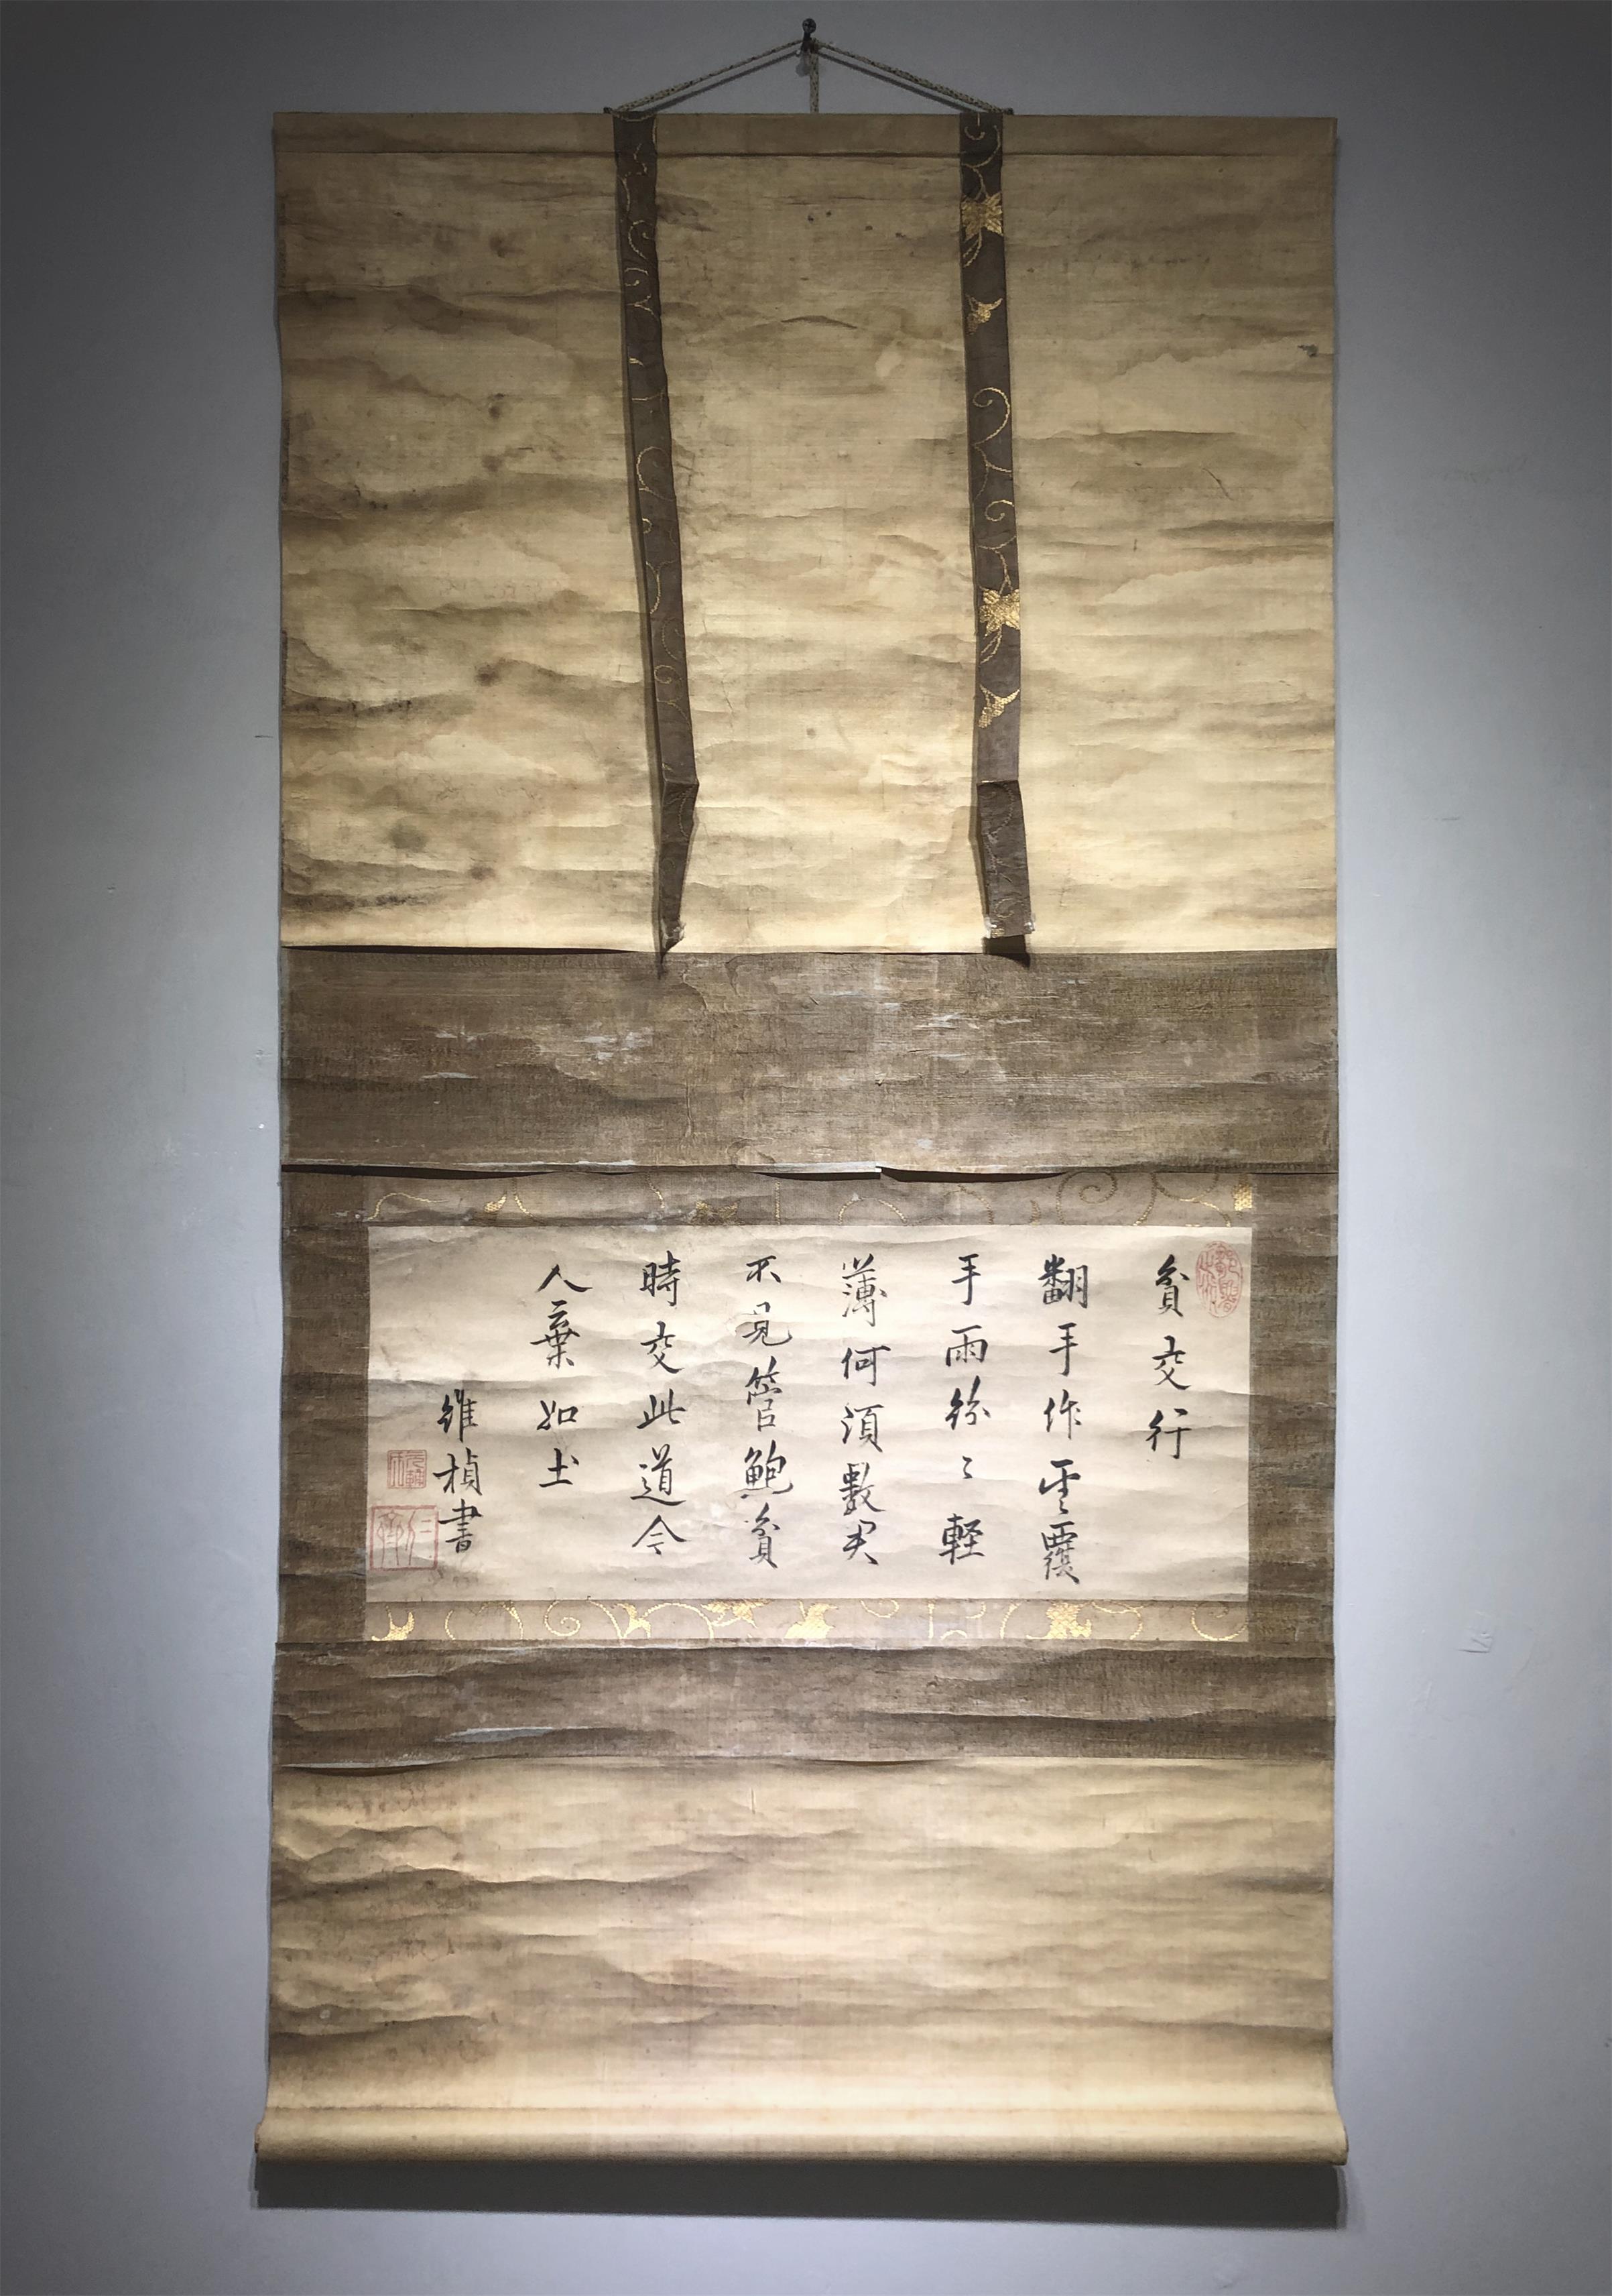 貧交行
翻手作雲覆
手雨紛〻軽
薄何須數君
不見管鮑貧
時交此道今
人棄如土
維楨書